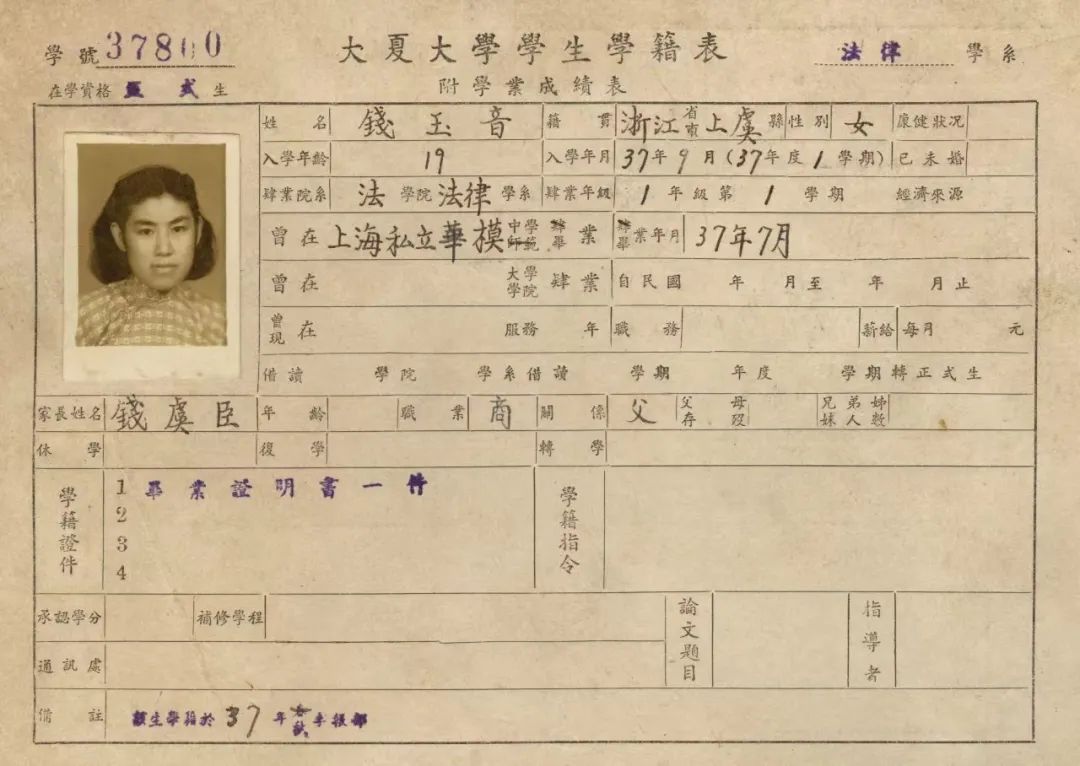 學號 37800
大夏大學學生學籍表
法律 學系
在學資格 正式生
附學業成績表
姓名 錢玉音 籍貫 浙江省市上虞縣 性別 女 康健狀況
入學年齡 19 入學年月 37年9月(37年度1學期) 已未婚
肄業院系 法學院法律學系 肄業年級 1年級第1學期 經濟來源
曾在 上海私立華模中學師範肄畢業 肄畢業年月 37年7月
曾在 大學學院 肄業 自民國 年 月至 年 月止
曾現在 服務 年 職務 薪給 每月 元
借讀 學院 學系借讀 學期 年度 學期轉正式生
家長姓名 錢虞臣 年齡 職業 商 關係 父 父母存歿 兄弟姊妹人數
休學 復學 轉學
學籍證件
1 畢業證明書一件
2
3
4
學籍指令
承認學分 補修學程 論文題目 指導者
通訊處
備註 該生學籍於37年春秋季報部